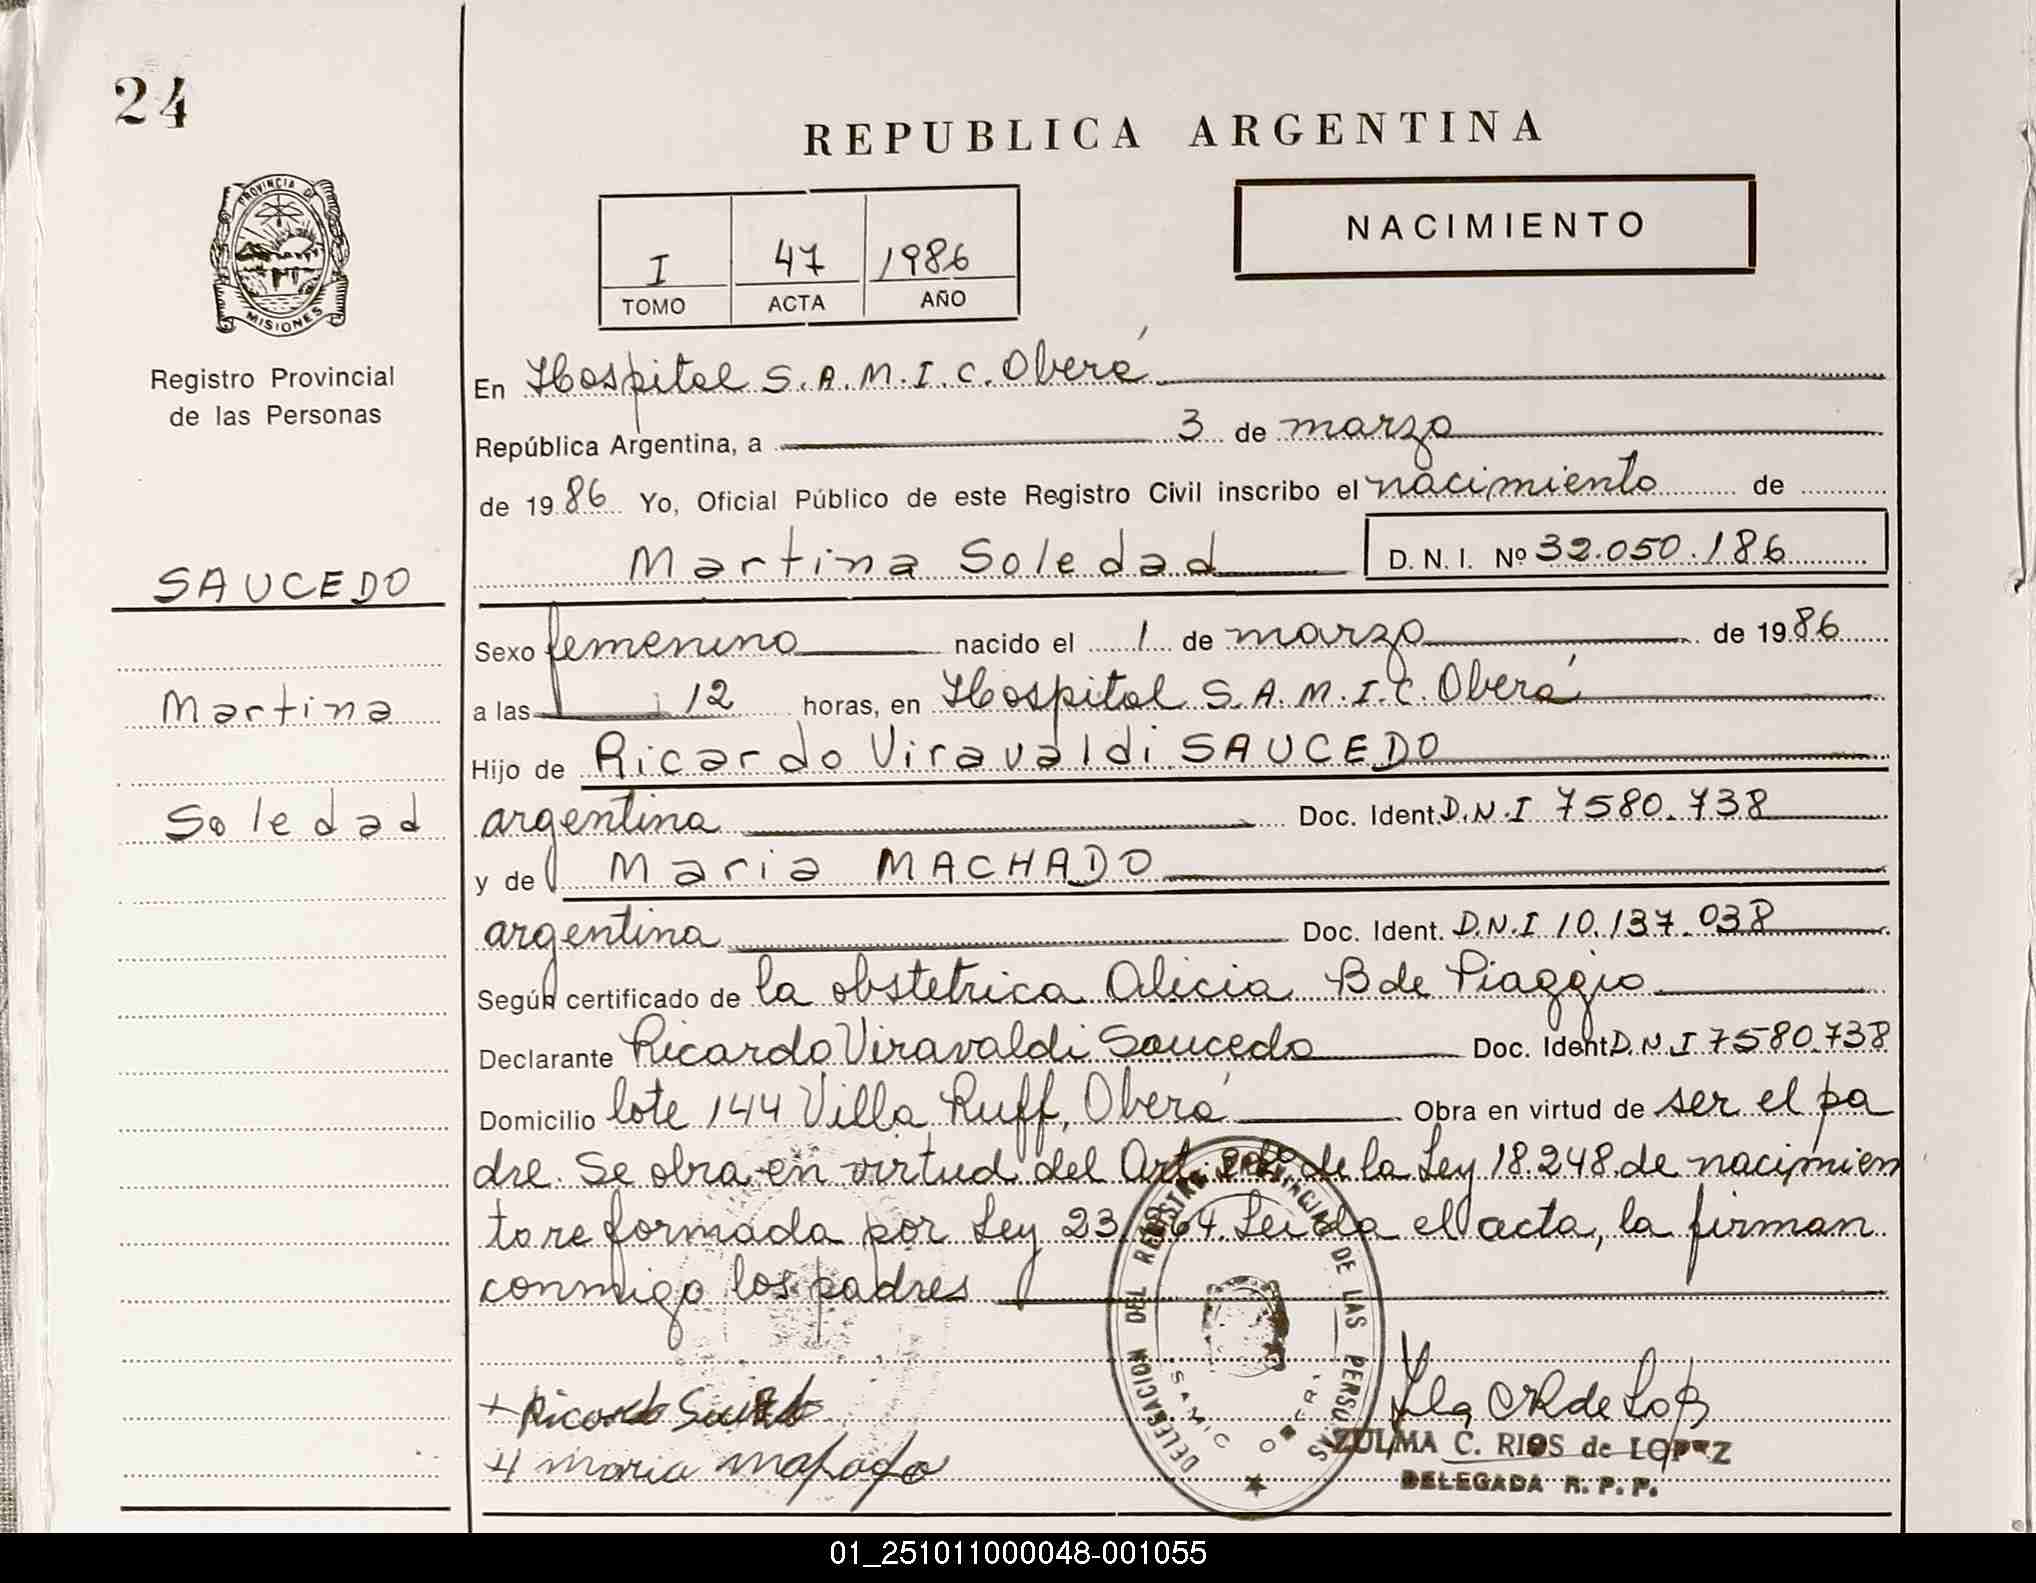 24
REPUBLICA ARGENTINA
PROVINCIA DE
MISIONES
Registro Provincial
de las Personas
I 47 1986
TOMO ACTA AÑO
NACIMIENTO
En Hospital S.A.M.I.C. Oberá
República Argentina, a 3 de marzo
de 1986 Yo, Oficial Público de este Registro Civil inscribo el nacimiento de
Martina Soledad D. N. I. Nº 32.050.186
SAUCEDO
Martina
Soledad
Sexo femenino nacido el 1 de marzo de 1986
a las 12 horas, en Hospital S.A.M.I.C. Oberá
Hijo de Ricardo Viravaldi SAUCEDO
argentina Doc. Ident. D.N.I 7580.738
y de Maria MACHADO
argentina Doc. Ident. D.N.I 10.137.038
Según certificado de la obstetrica Alicia B de Piaggio
Declarante Ricardo Viravaldi Saucedo Doc. Ident D.N.I 7580.738
Domicilio lote 144 Villa Ruff, Oberá Obra en virtud de ser el pa
dre. Se obra en virtud del Art. de la Ley 18.248 de nacimien
to reformada por Ley 23. Leida el acta, la firman
conmigo los padres
DELEGACION DEL REGISTRO PROVINCIAL DE LAS PERSONAS
SAMIC
+ Ricardo
+ maria
ZULMA C. RIOS de LOPEZ
DELEGADA R. P. P.
01_251011000048-001055